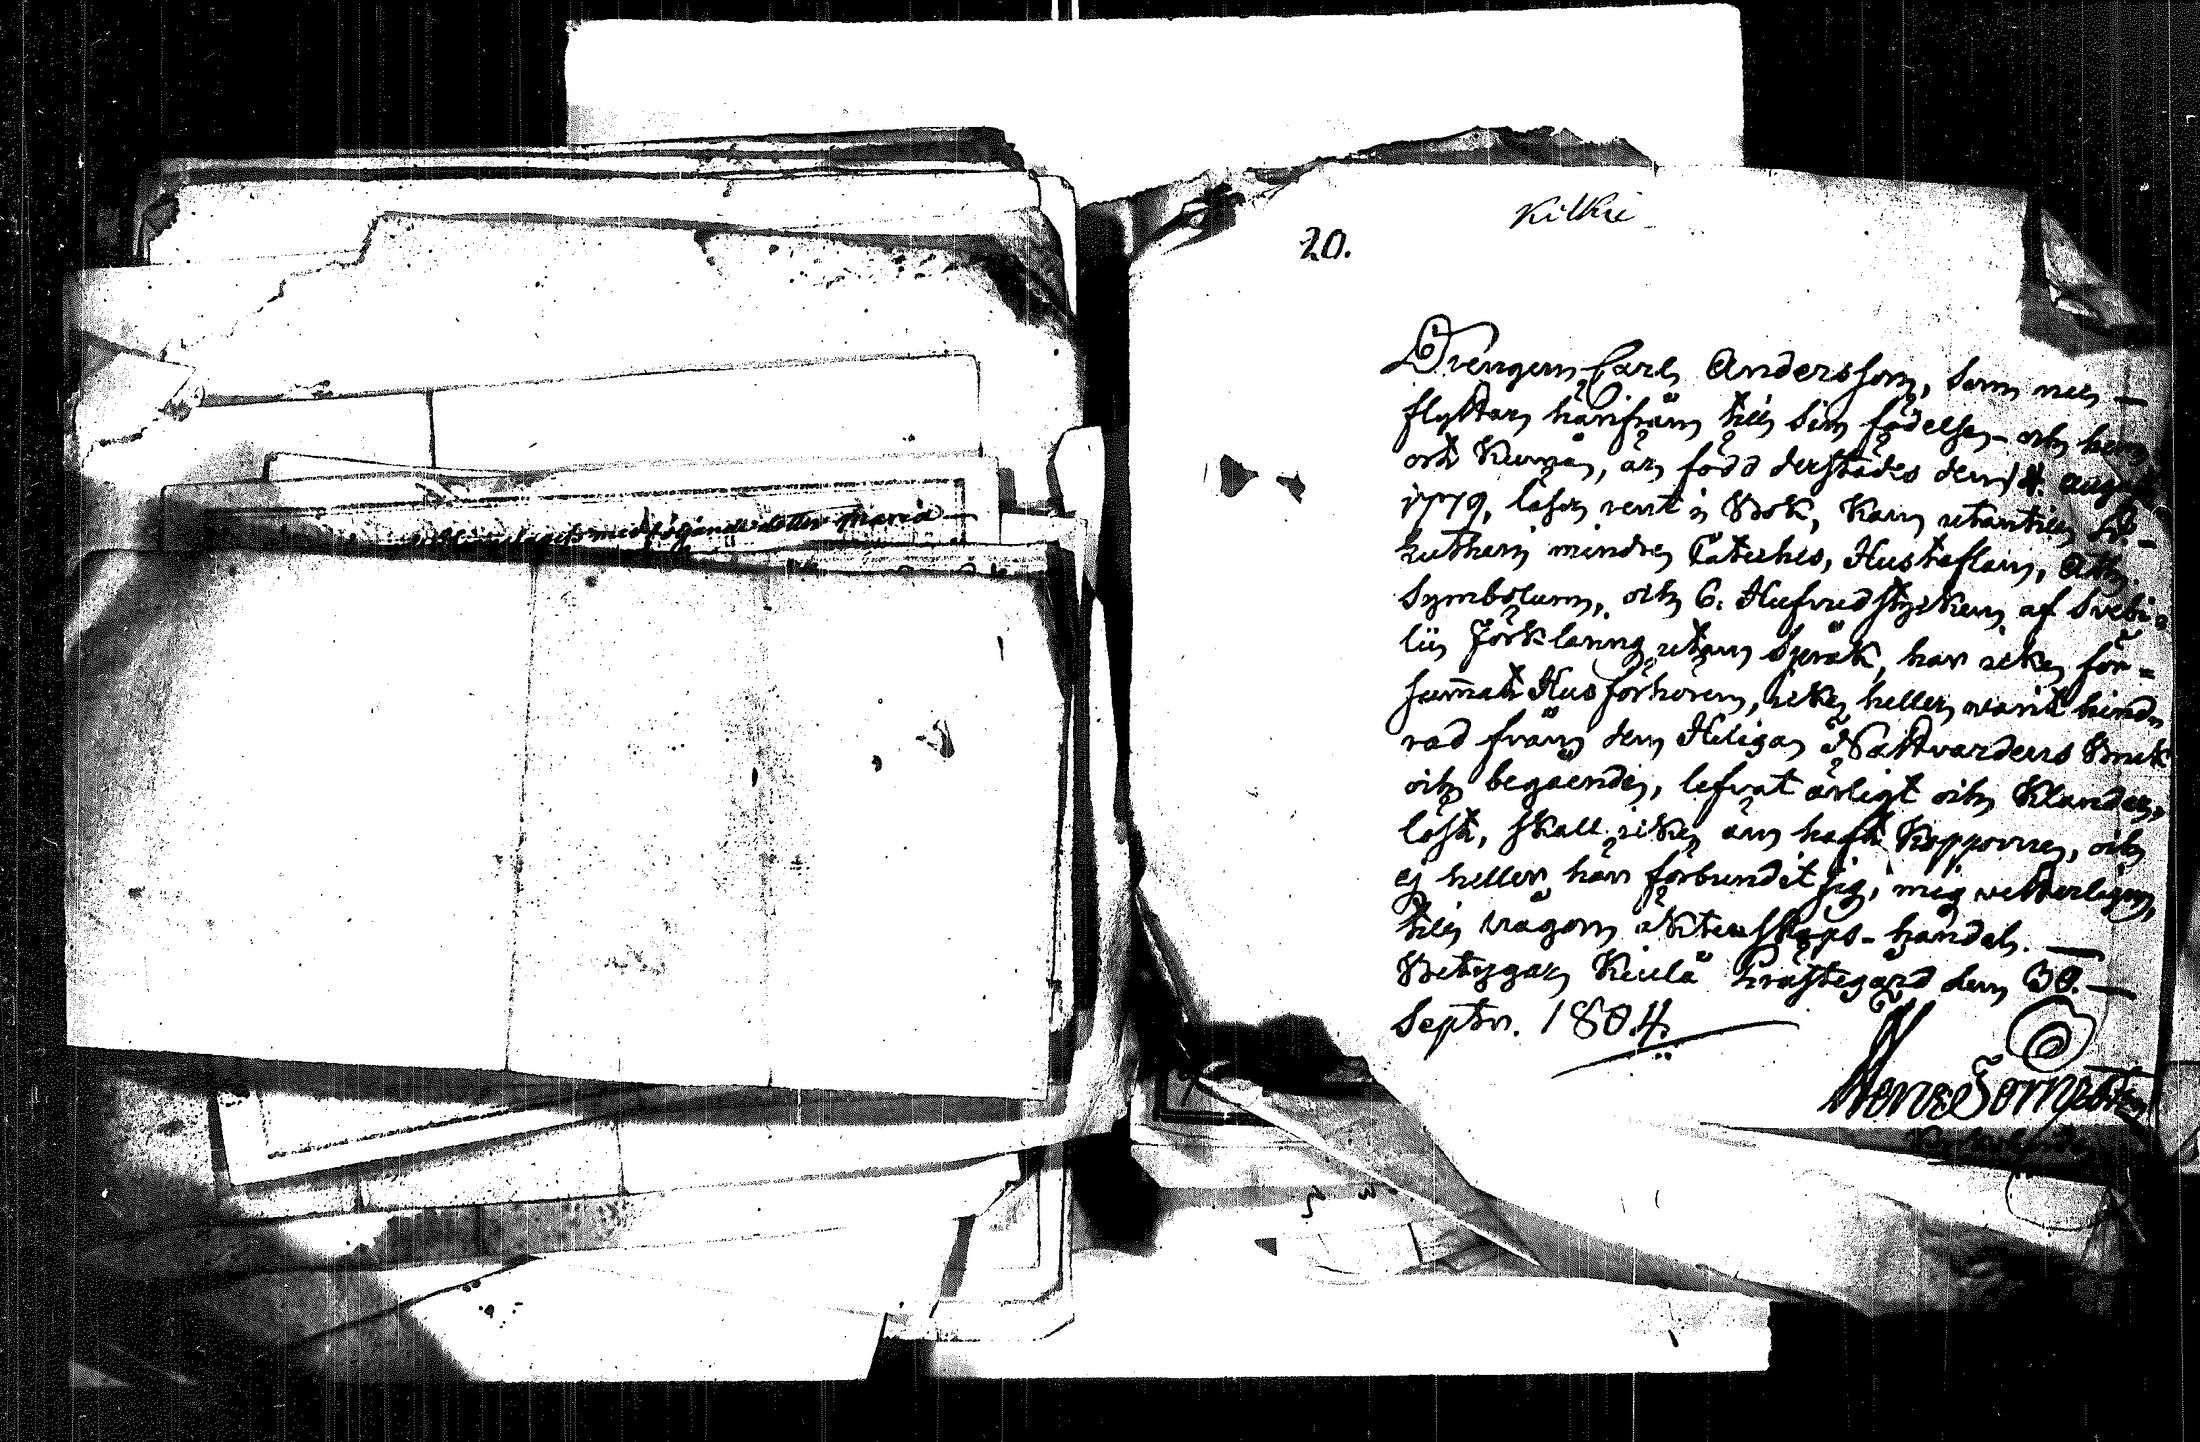 medföljande dotter Maria
Kilkis
20.
Drengen Carl Andersson, som nu
flyttar härifrån till sin födelse- och hem
ort Kumo, är född derstädes den 14. august
1779, läser rent i Bok, kan utantill D.
Lutheri mindre Cateches, Hustaflan, Ath.
Symbolum, och 6. Hufvudstycken af Svebi-
lii Förklaring utan Språk, har icke för-
summat Husförhören, icke heller warit hind-
rad från den Heliga Nattvardens Bruk
och begående, lefvat ärligt och Klander-
löst, skall icke än haft Kopporne, och
ej heller har förbundit sig, mig vetterligen,
till någon Äktenskaps-handel.
Betygar Kiula Prästegård den 30.
Septbr. 1804.